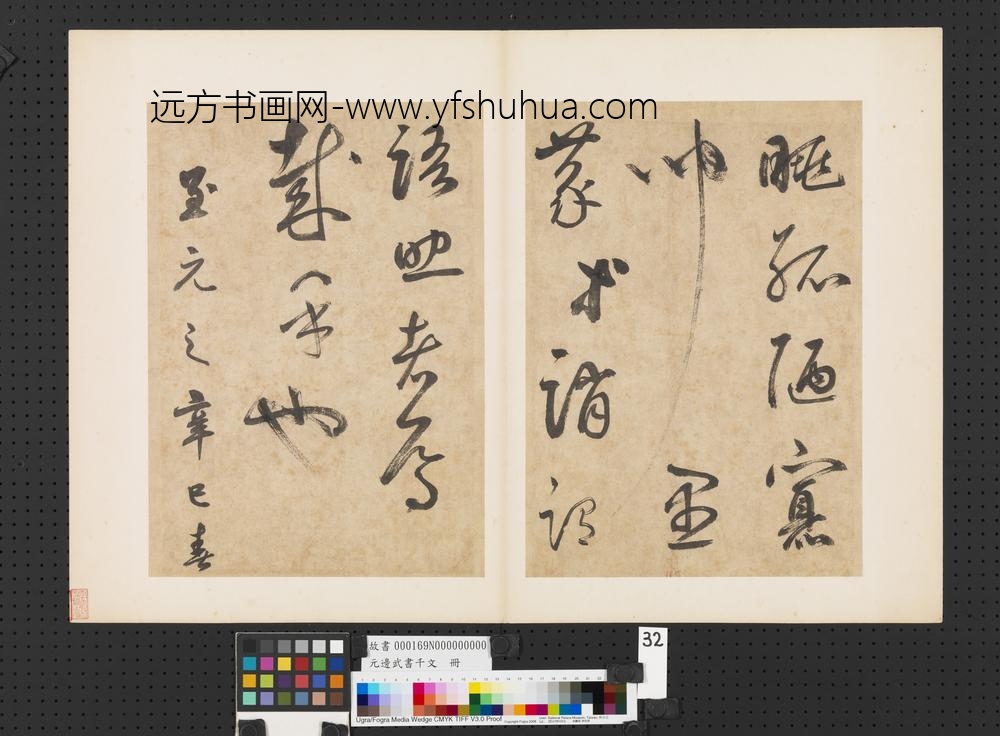 远方书画网-www.yfshuhua.com
眺孤陋寡
闻愚
蒙等誚謂
語助者焉
哉乎也
至元之辛巳春
故書 000169N000000000
元邊武書千文 冊
32
Ugra/Fogra Media Wedge CMYK TIFF V3.0 Proof